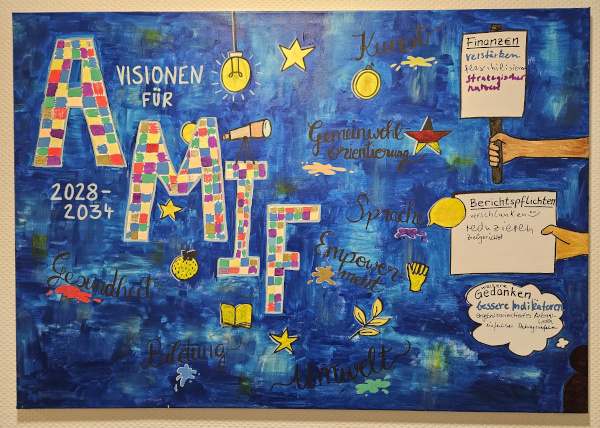 VISIONEN
FÜR
AMIF
2028-
2034
Kunst
Gemeinwohl-
orientierung
Sprache
Empower-
ment
Gesundheit
Bildung
Umwelt
Finanzen
verstärken
flexibilisieren
Strategischer
nutzen
Berichtspflichten
verschlanken
reduzieren
weitere
Gedanken
bessere Indikatoren